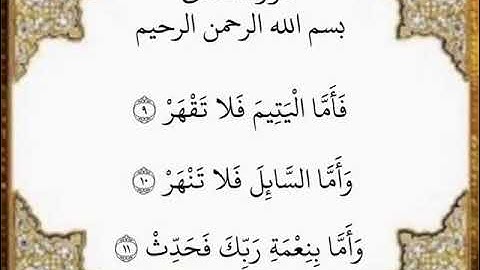 بسم الله الرحمن الرحيم
فَأَمَّا الْيَتِيمَ فَلا تَقْهَرْ ٩
وَأَمَّا السَّائِلَ فَلا تَنْهَرْ ١٠
وَأَمَّا بِنِعْمَةِ رَبِّكَ فَحَدِّثْ ١١